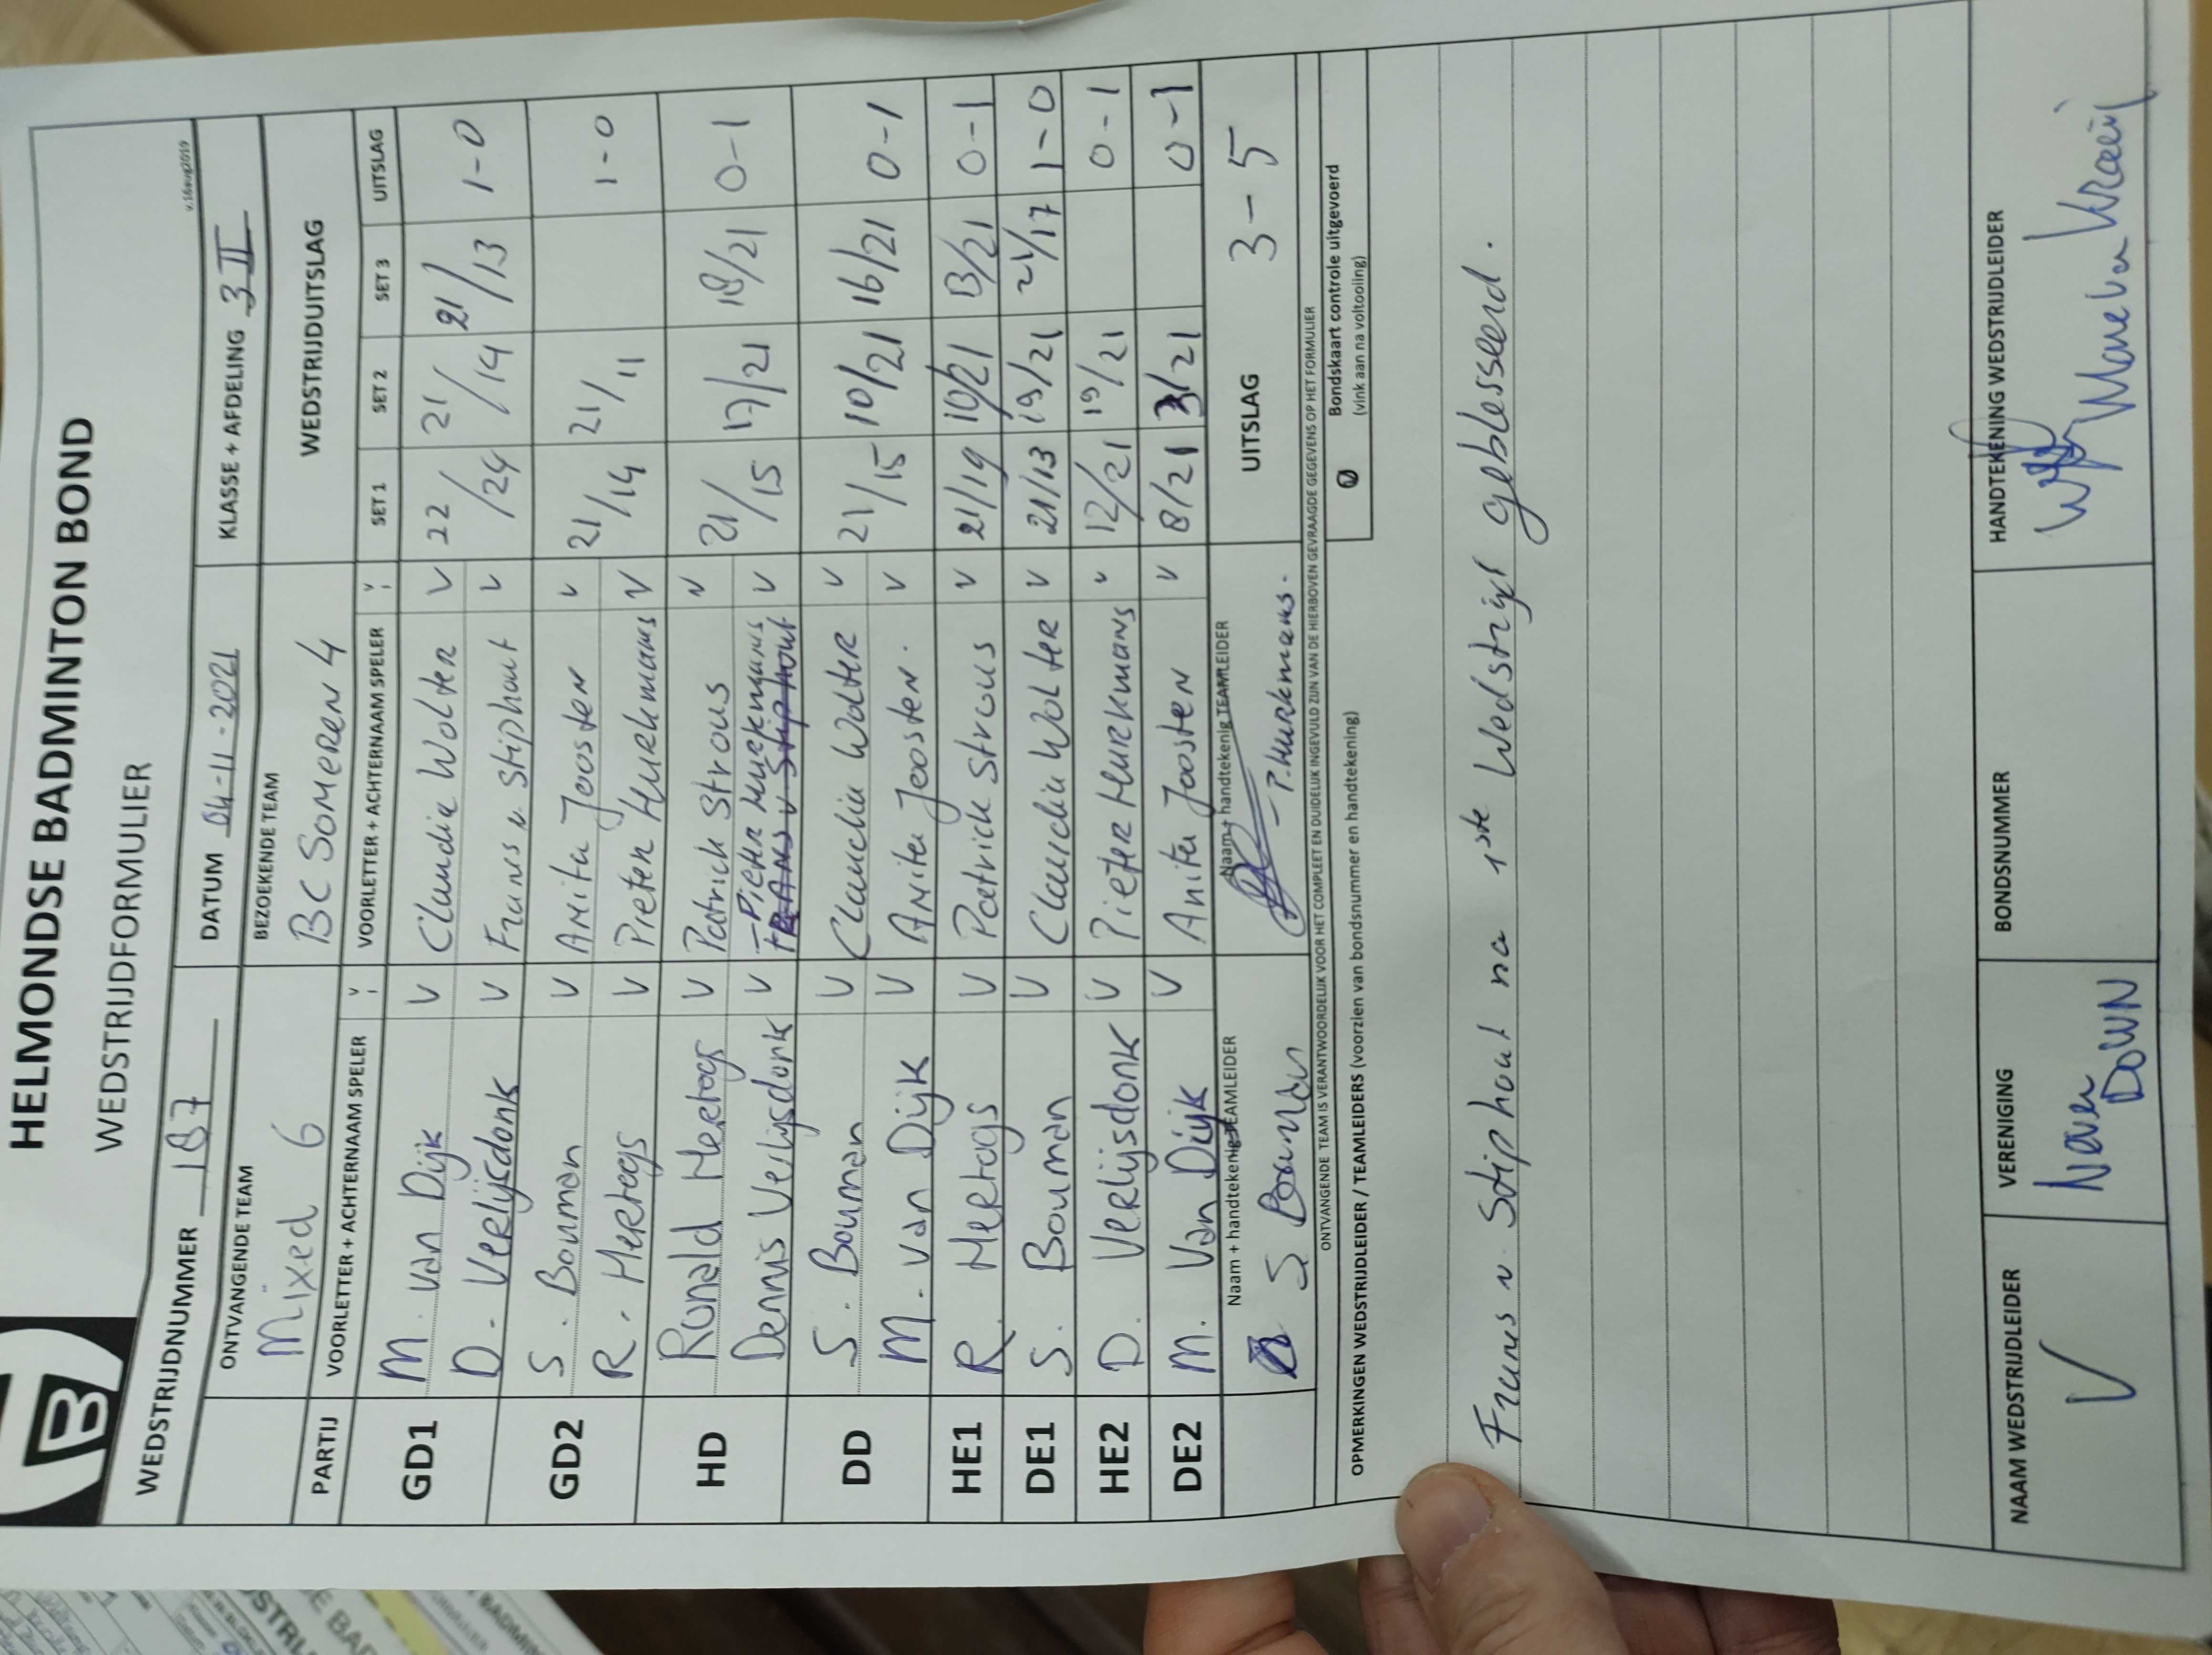 HELMONDSE BADMINTON BOND
WEDSTRIJDFORMULIER
v.16aug2019
WEDSTRIJDNUMMER 187 DATUM 04-11-2021 KLASSE + AFDELING 3 II
ONTVANGENDE TEAM BEZOEKENDE TEAM WEDSTRIJDUITSLAG
Mixed 6 BC SOMEREN 4
PARTIJ VOORLETTER + ACHTERNAAM SPELER V VOORLETTER + ACHTERNAAM SPELER V SET 1 SET 2 SET 3 UITSLAG
GD1 M. Van Dijk V Claudia Wolter V 22/24 21/14 21/13 1-0
D. Verlijsdonk V Frans v Stiphout V
GD2 S. Bouman V Anita Joosten V 21/14 21/11 1-0
R. Hertogs V Pieter Hurkmans V
HD Ronald Hertogs V Patrick Strous V 21/15 17/21 18/21 0-1
Dennis Verlijsdonk V - Pieter Hurkmans V
Frans v Stiphout
DD S. Bouman V Claudia Wolter V 21/15 10/21 16/21 0-1
M. Van Dijk V Anita Joosten. V
HE1 R. Hertogs V Patrick Strous V 21/19 10/21 13/21 0-1
DE1 S. Bouman V Claudia Wolter V 21/13 19/21 21/17 1-0
HE2 D. Verlijsdonk V Pieter Hurkmans V 12/21 19/21 0-1
DE2 M. Van Dijk V Anita Joosten V 8/21 3/21 0-1
Naam + handtekenig TEAMLEIDER Naam + handtekenig TEAMLEIDER UITSLAG 3-5
S Bouman P. Hurkmans.
ONTVANGENDE TEAM IS VERANTWOORDELIJK VOOR HET COMPLEET EN DUIDELIJK INGEVULD ZIJN VAN DE HIERBOVEN GEVRAAGDE GEGEVENS OP HET FORMULIER
OPMERKINGEN WEDSTRIJDLEIDER / TEAMLEIDERS (voorzien van bondsnummer en handtekening)
Bondskaart controle uitgevoerd
(vink aan na voltooiing)
Frans v. Stiphout na 1ste Wedstrijd geblesseerd.
NAAM WEDSTRIJDLEIDER VERENIGING BONDSNUMMER HANDTEKENING WEDSTRIJDLEIDER
V Never Down